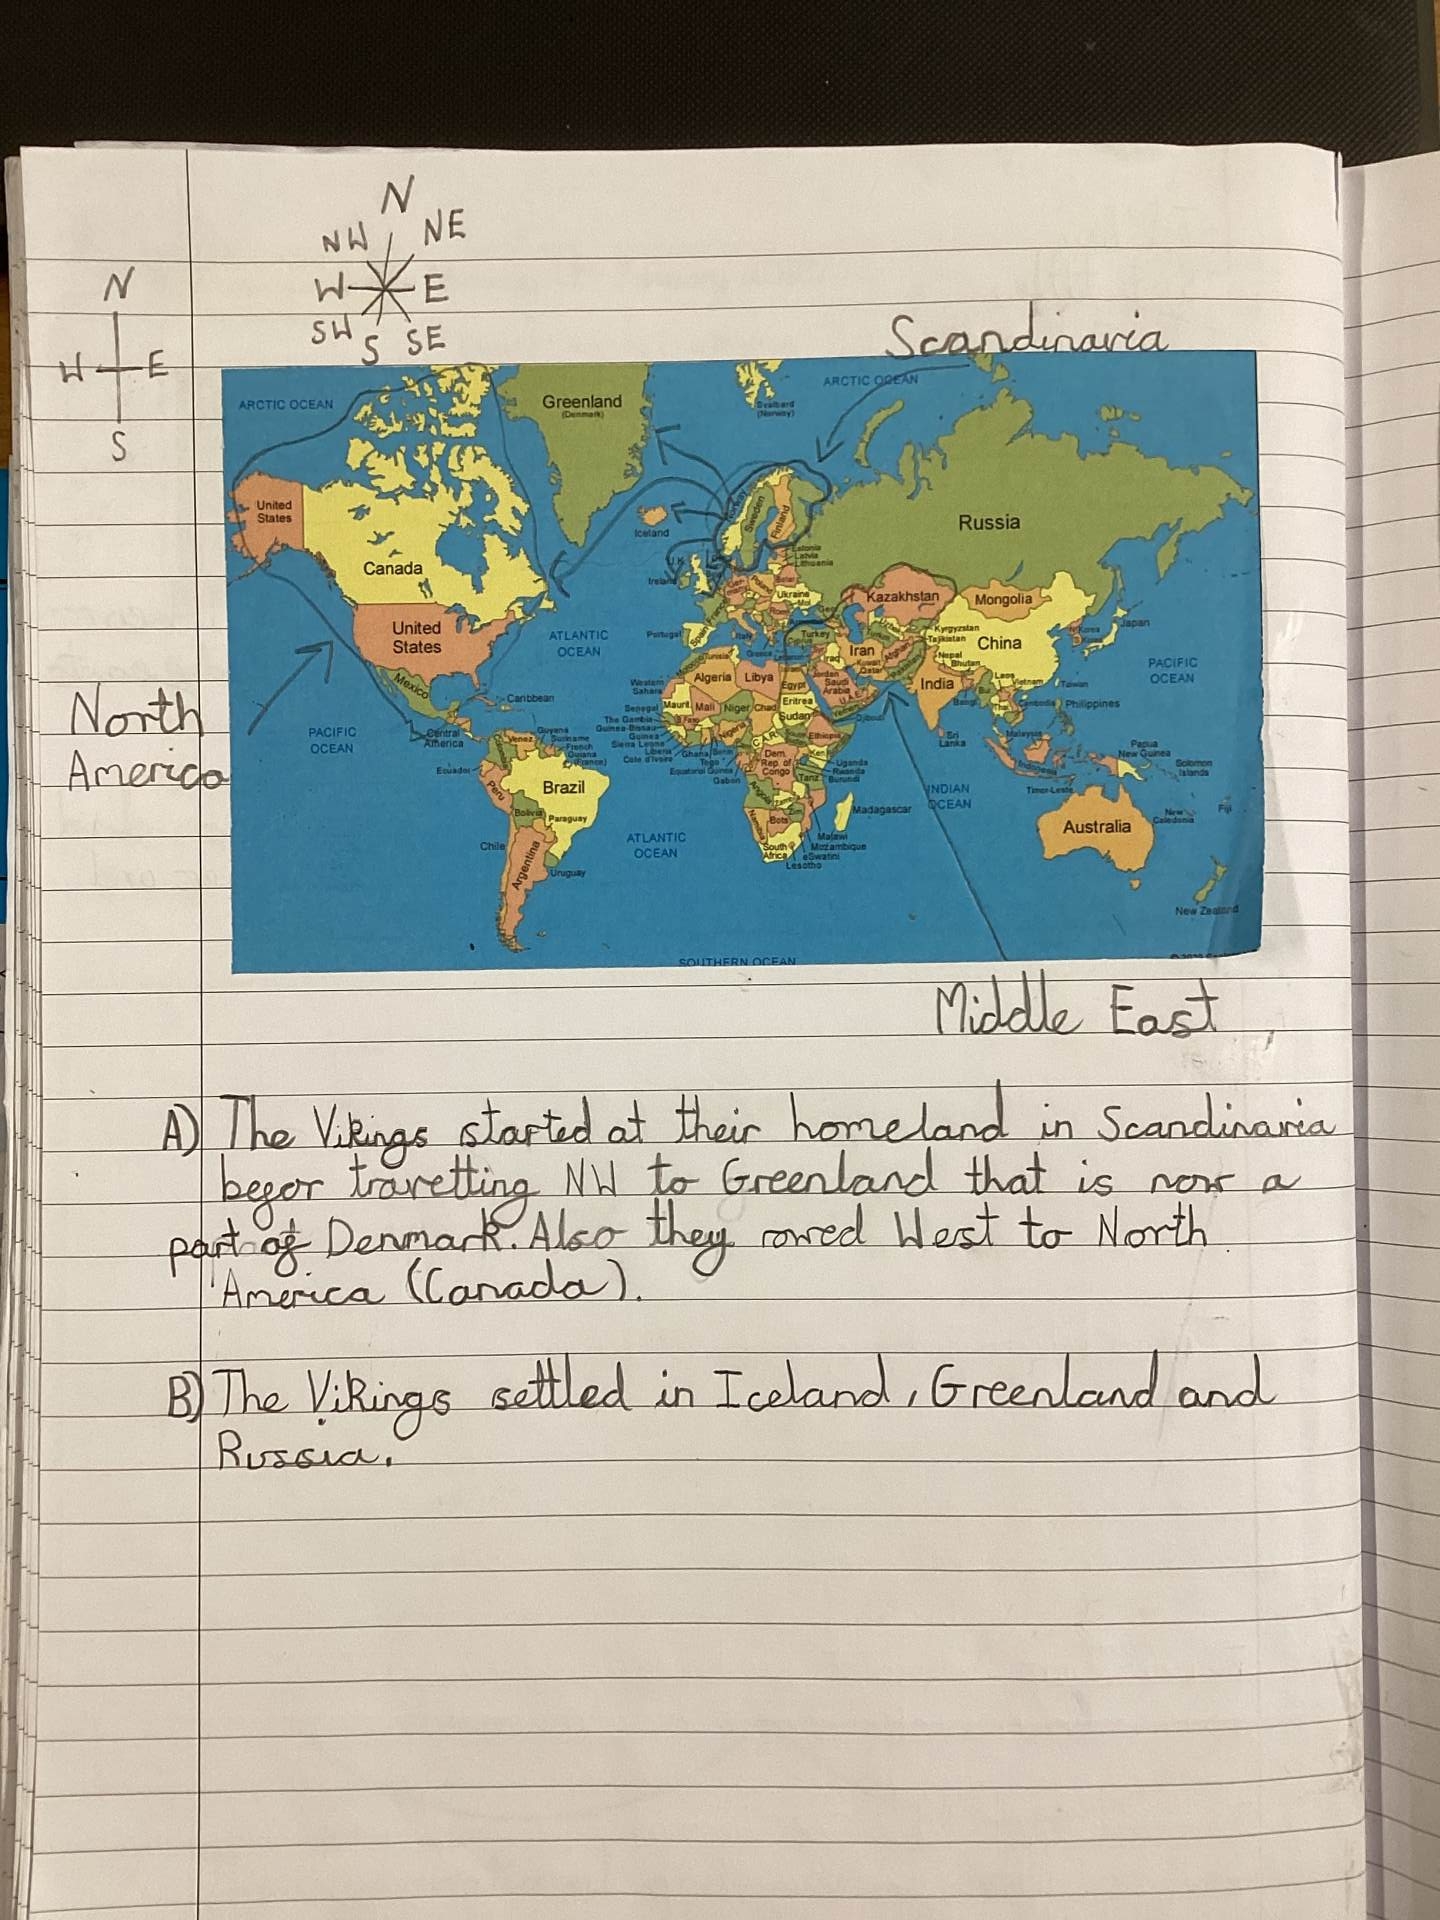 N
NW NE
W E
SW S SE
N
W E
S
Scandinavia
ARCTIC OCEAN
Greenland
(Denmark)
Svalbard
(Norway)
ARCTIC OCEAN
United
States
Canada
Iceland
Norway
Sweden
Finland
Russia
Estonia
Latvia
Lithuania
U.K.
Ireland
Poland
Belar
Ukraine
Kazakhstan
Mongolia
United
States
ATLANTIC
OCEAN
Portugal
Spain
France
Italy
Greece
Turkey
Kyrgyzstan
Tajikistan
China
N Korea
S Korea
Japan
Mexico
Tunisia
Algeria
Libya
Egypt
Iraq
Iran
Kuwait
Qatar
Jordan
Saudi
Arabia
U.A.E.
Yemen
Afghan
Pakistan
Nepal
Bhutan
India
PACIFIC
OCEAN
Caribbean
Western
Sahara
Maurit
Mali
Niger
Chad
Sudan
Eritrea
Djibouti
Laos
Vietnam
Thai
Taiwan
Cambodia
Philippines
North
America
PACIFIC
OCEAN
Central
America
Venez
Guyana
Suriname
French
Guiana
(France)
Senegal
The Gambia
Guinea-Bissau
Guinea
Sierra Leone
Liberia
Cote d'Ivoire
Ghana
Benin
Togo
Equatorial Guinea
Gabon
Nigeria
C.A.R.
Ethiopia
Sri
Lanka
Malaysia
Indonesia
Papua
New Guinea
Solomon
Islands
Ecuador
Peru
Brazil
Dem.
Rep. of
Congo
Uganda
Rwanda
Burundi
Tanz
INDIAN
OCEAN
Timor-Leste
Bolivia
Paraguay
Angola
Zim
Namibia
Bots
Madagascar
Australia
New
Caledonia
Fiji
Chile
Argentina
Uruguay
ATLANTIC
OCEAN
South
Africa
Malawi
Mozambique
eSwatini
Lesotho
New Zealand
SOUTHERN OCEAN
Middle East
A) The Vikings started at their homeland in Scandinavia
travelling NW to Greenland that is now a
part of Denmark. Also they rowed West to North
America (Canada).
B) The Vikings settled in Iceland, Greenland and
Russia.